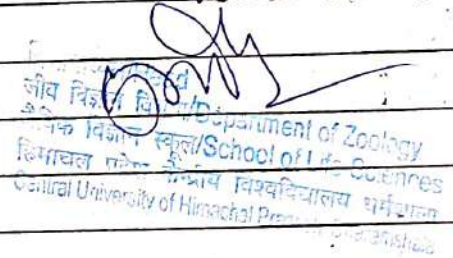 जीव विज्ञान /Department of Zoology
विज्ञान स्कूल/School of Life Sciences
हिमाचल प्रदेश केन्द्रीय विश्वविद्यालय धर्मशाला
Central University of Himachal